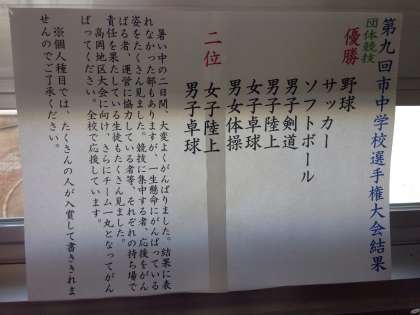 第九回市中学校選手権大会結果
団体競技
優勝
野球
サッカー
ソフトボール
男子剣道
男子陸上
女子卓球
男女体操
二位
女子陸上
男子卓球
暑い中の二日間、大変よくがんばりました。結果に表
れなかった部もありますが、一生懸命にがんばっている
姿をたくさん見ました。競技に集中する者、応援をがん
ばる者、運営に協力している者等、それぞれの持ち場で
責任を果たしている生徒もたくさん見ました。
高岡地区大会に向け、さらにチーム一丸となってがん
ばってください。全校で応援しています。
※個人種目では、たくさんの人が入賞して書ききれま
せんのでご了承ください。